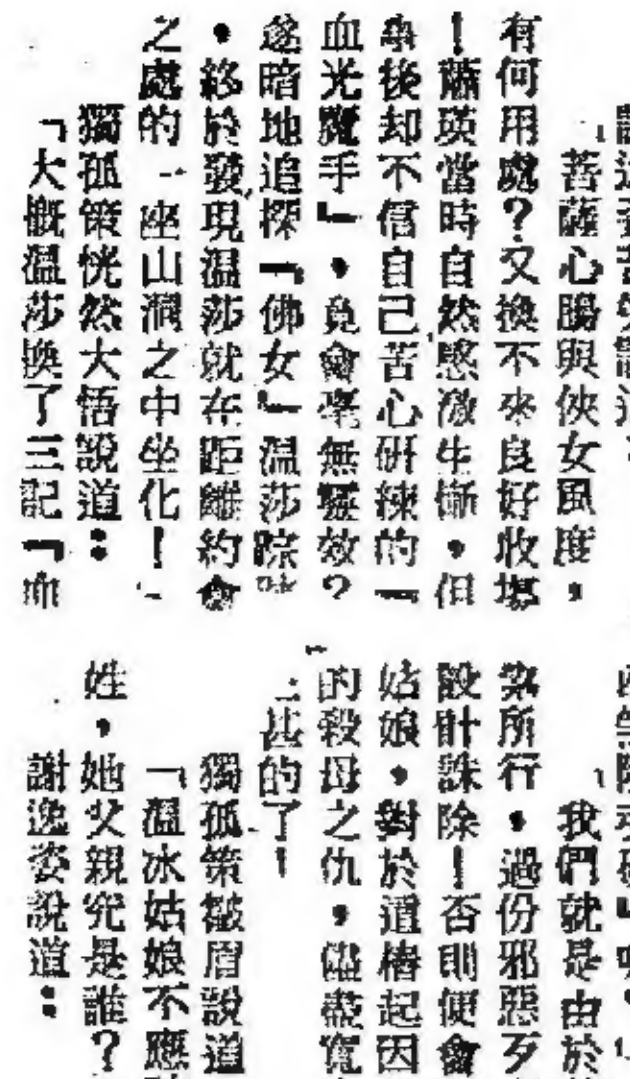 謝逸姿苦笑說道：
「菩薩心腸與俠女風度，
有何用處？又換不來良好收場
！蕭瑛當時自然愍激生慚，但
事後却不信自己苦心研煉的「
血光魔手」，竟會毫無靈效？
遂暗地追探「佛女」溫莎踪
，終於發現溫莎就在距離約會
之處的一座山洞之中坐化！」
獨孤策恍然大悟說道：
「大概溫莎換了三記「血
「我們就是由於
所行，過份邪惡歹
設計誅除！否則便會
姑娘，對於這樁起因
的殺母之仇，儘盡寬
甚的了！
獨孤策皺眉說道
「溫冰姑娘不應
姓，她父親究是誰？
謝逸姿說道：